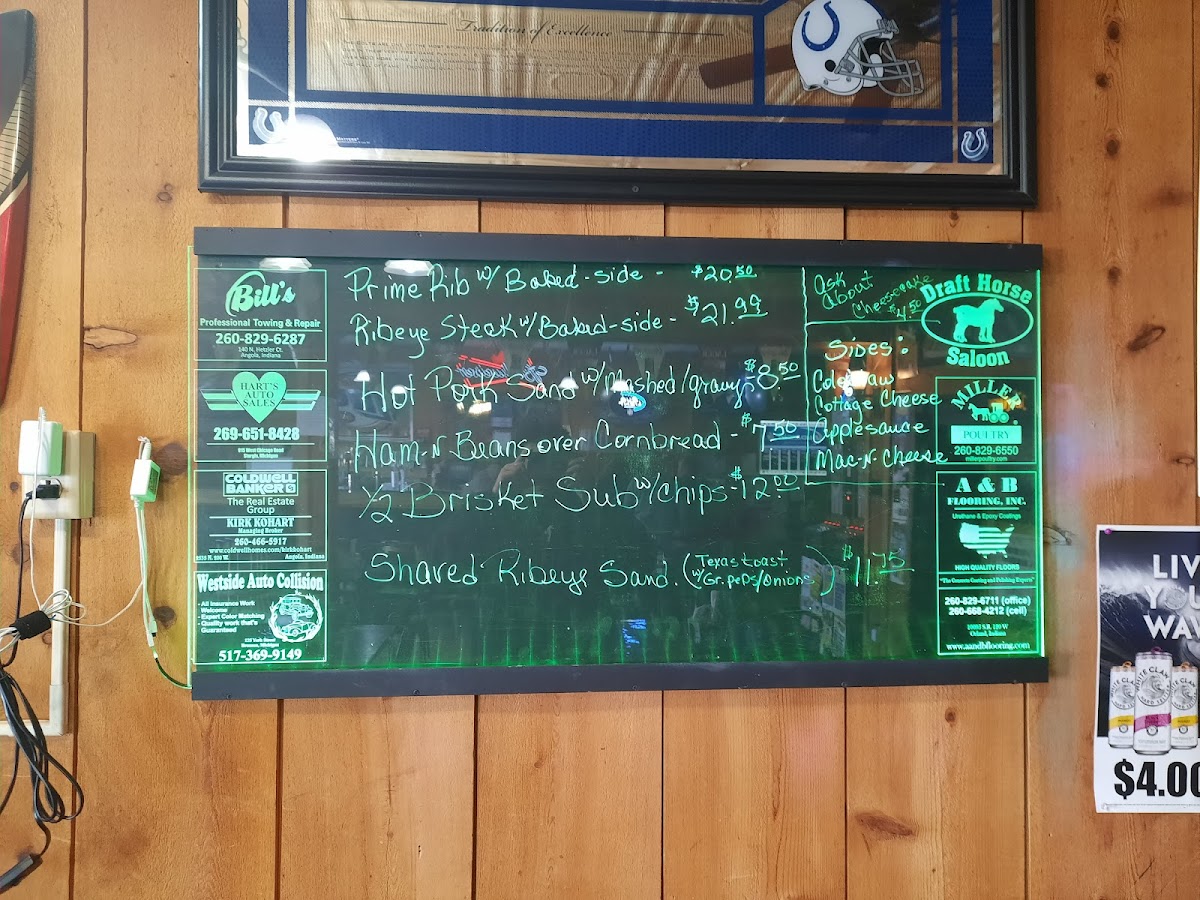 Tradition of Excellence
Prime Rib w/ Baked-side - $20.50
Ribeye Steak w/ Baked-side - $21.99
Hot Pork Sand w/ Mashed/gravy - $8.50
Ham-N-Beans over Cornbread - $7.50
1/2 Brisket Sub w/ chips - $12.00
Shared Ribeye Sand. (w/ Texas toast
Gr. peps/Onions) $11.75
Ask
About
Cheesecake
$4.50
Sides:
Coleslaw
Cottage Cheese
Applesauce
Mac-N-Cheese
Bill's
Professional Towing & Repair
260-829-6287
140 N. Hetzler Ct.
Angola, Indiana
HART'S
AUTO
SALES
269-651-8428
Sturgis, Michigan
COLDWELL
BANKER
The Real Estate
Group
KIRK KOHART
Managing Broker
260-466-5917
www.coldwellhomes.com/kirkhohart
Angola, Indiana
Westside Auto Collision
- All Insurance Work
Welcome
- Expert Color Matching
- Quality work that's
Guaranteed
517-369-9149
Draft Horse
Saloon
MILLER
POULTRY
260-829-6550
millerpoultry.com
A & B
FLOORING, INC.
Urethane & Epoxy Coatings
HIGH QUALITY FLOORS
"The Concrete Coating and Polishing Experts"
260-829-6711 (office)
260-668-4212 (cell)
Orland, Indiana
www.aandbflooring.com
LIV
YOU
WAV
WHITE CLAW
HARD SELTZER
$4.00